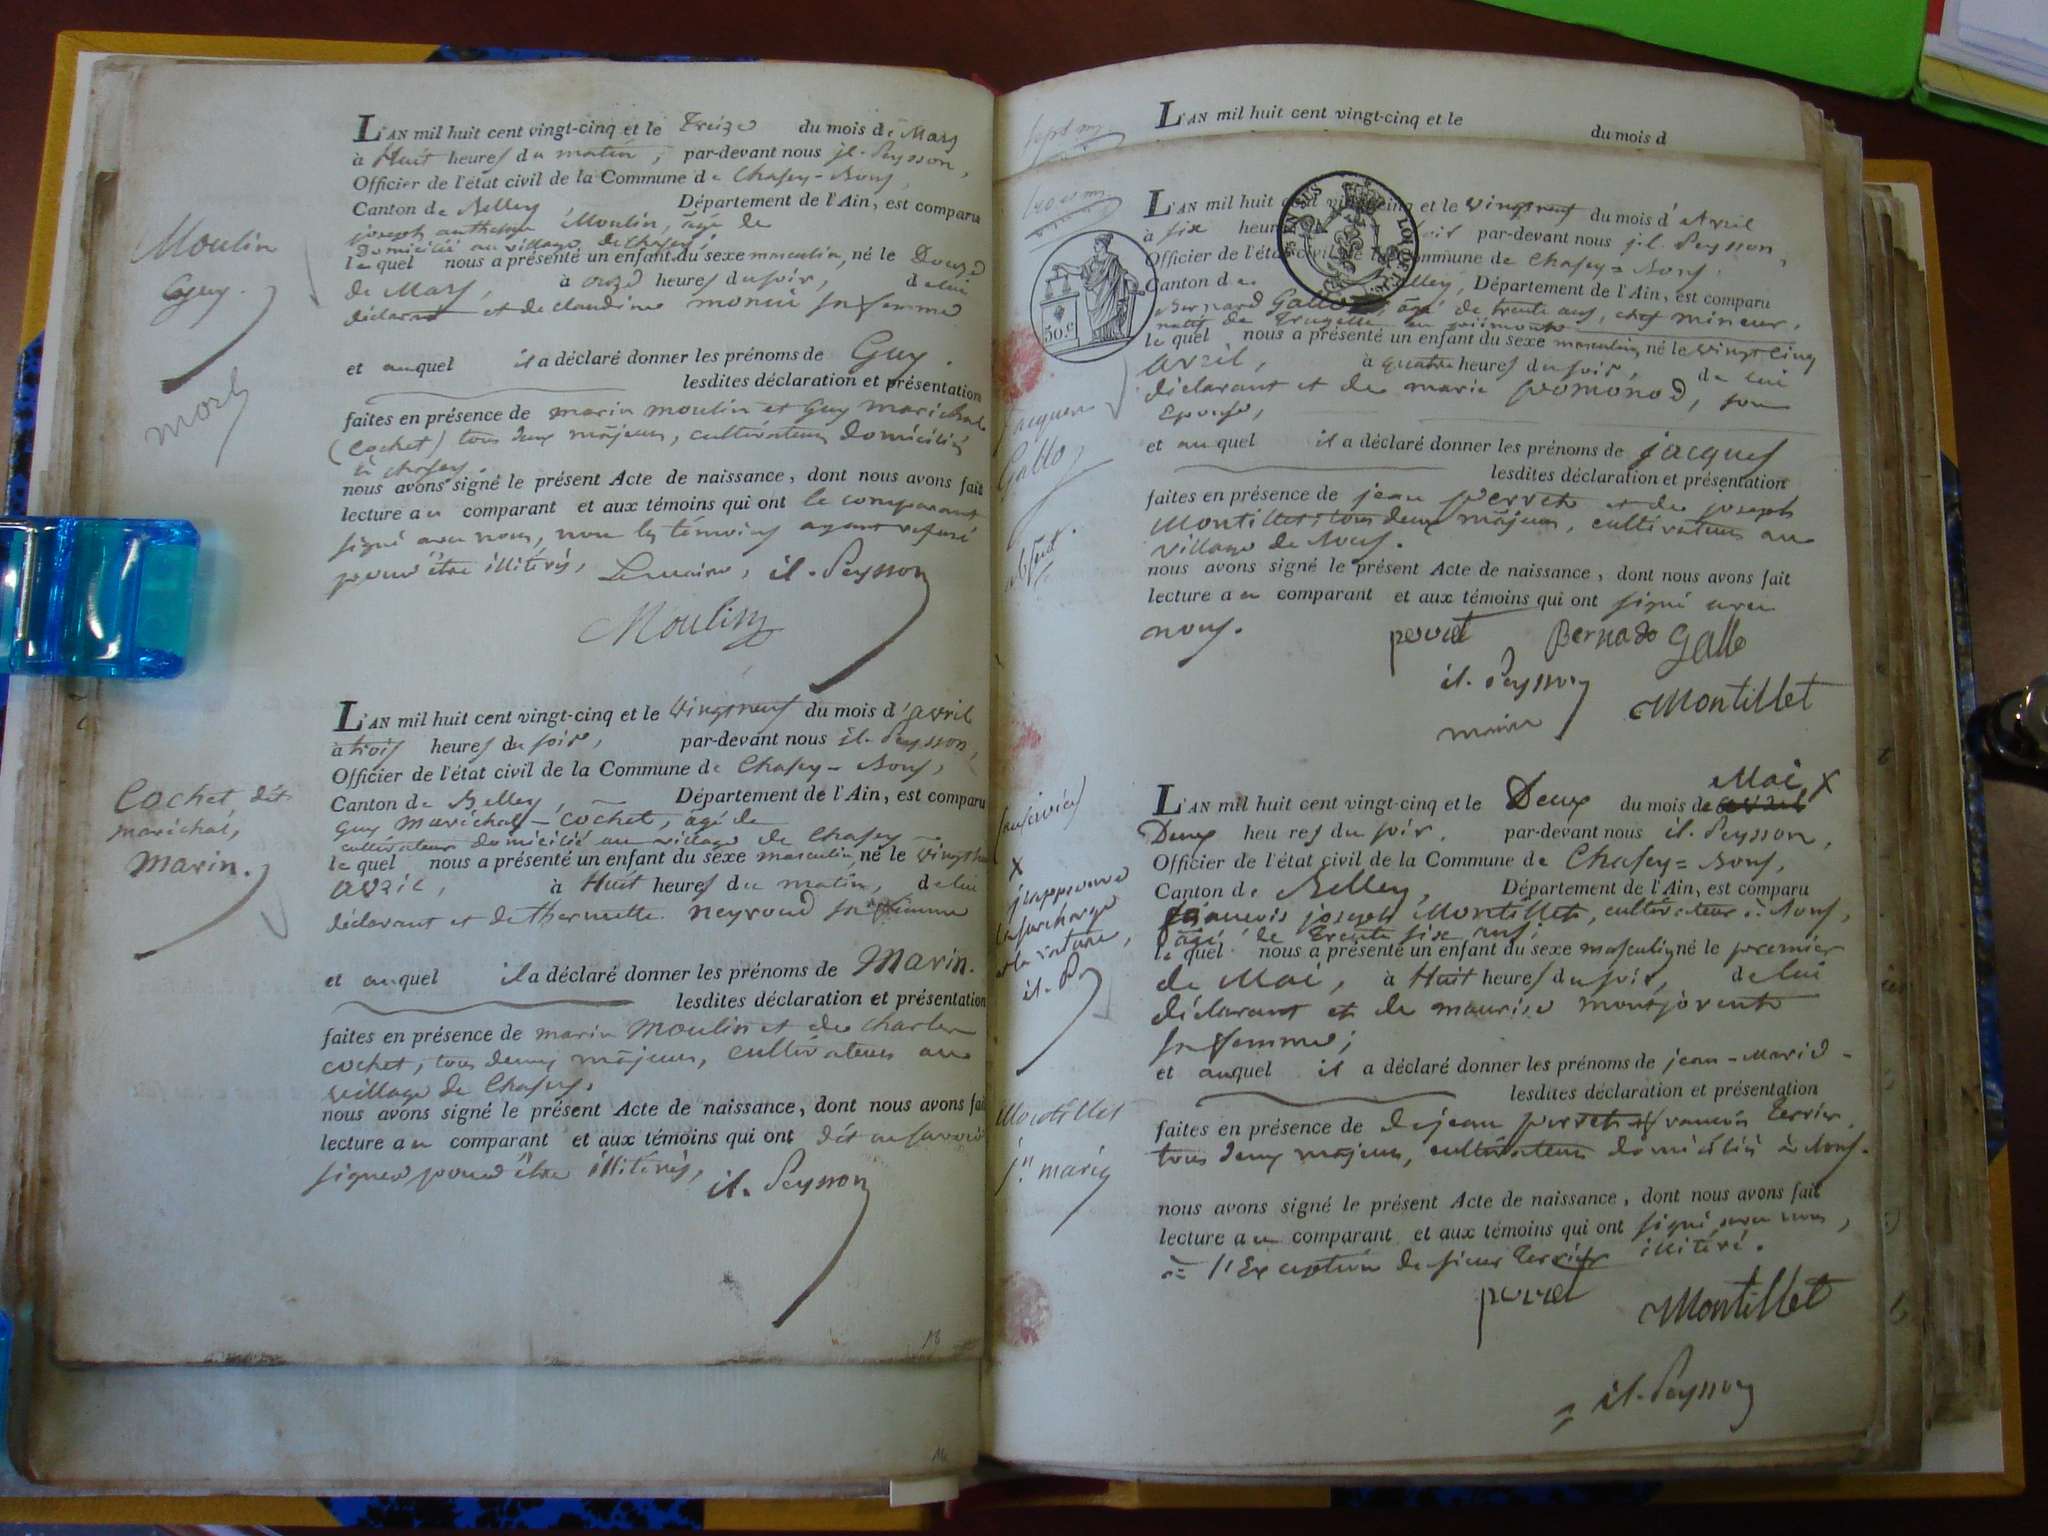 L'AN mil huit cent vingt-cinq et le Treize du mois de Mars
à Huit heures du matin, par-devant nous jl. Peysson,
Officier de l'état civil de la Commune de Chasey-Bons,
Canton de Belley, Département de l'Ain, est comparu
joseph anthelme Moulin, âgé de
Domicilié au village de Chasey,
lequel nous a présenté un enfant du sexe masculin, né le Douze
de Mars, à onze heures du soir, de lui
déclarant et de claudine sa femme
et auquel il a déclaré donner les prénoms de Guy.
lesdites déclaration et présentation
faites en présence de marin moulin et Guy marichal
(cochet) tous deux majeurs, cultivateurs domiciliés
à chasey
nous avons signé le présent Acte de naissance, dont nous avons fait
lecture au comparant et aux témoins qui ont le comparant
signé avec nous, non les témoins ayant refusé
pour être illitérés, Le maire, jl. Peysson
Moulin
Moulin
Guy.
mort
L'AN mil huit cent vingt-cinq et le vingtneuf du mois d'avril
à trois heures du soir, par-devant nous jl. Peysson,
Officier de l'état civil de la Commune de Chasey-Bons,
Canton de Belley, Département de l'Ain, est comparu
Guy Maréchal-Cochet, âgé de
cultivateur domicilié au village de Chasey
lequel nous a présenté un enfant du sexe masculin, né le
avril, à Huit heures du matin, de lui
déclarant et de thermette neyroud sa femme
et auquel il a déclaré donner les prénoms de Marin.
lesdites déclaration et présentation
faites en présence de marin Moulin et de charles
cochet, tous deux majeurs, cultivateurs au
village de Chasey,
nous avons signé le présent Acte de naissance, dont nous avons fait
lecture au comparant et aux témoins qui ont dit ne savoir
signer pour être illitérés, jl. Peysson
Cochet dit
marichal,
Marin.
18
L'AN mil huit cent vingt-cinq et le du mois d
L'AN mil huit cent vingt-cinq et le vingtneuf du mois d'Avril
à six heures du soir par-devant nous jl. Peysson,
Officier de l'état civil de la Commune de Chasey=Bons,
Canton de Belley, Département de l'Ain, est comparu
Bernard Gallo, âgé de trente ans, chef mineur,
natif de en piémont
lequel nous a présenté un enfant du sexe masculin né le vingt cinq
avril, à quatre heures du soir, de lui
déclarant et de marie pomonod, son
Epouse,
et auquel il a déclaré donner les prénoms de jacques
lesdites déclaration et présentation
faites en présence de jean perret et de joseph
Montillet tous deux majeurs, cultivateurs au
village de Bons.
nous avons signé le présent Acte de naissance, dont nous avons fait
lecture au comparant et aux témoins qui ont signé avec
nous. perret Bernado Gallo
jl. Peysson
maire Montillet
50.c
LOI DE
Jacques
Gallo
L'AN mil huit cent vingt-cinq et le Deux du mois de Mai X
Deux heures du soir, par-devant nous jl. Peysson,
Officier de l'état civil de la Commune de Chasey=Bons,
Canton de Belley, Département de l'Ain, est comparu
françois joseph Montillet, cultivateur à Bons,
âgé de trente six ans,
lequel nous a présenté un enfant du sexe masculin né le premier
de Mai, à Huit heures du soir, de lui
déclarant et de maurise montjovent
sa femme;
et auquel il a déclaré donner les prénoms de jean-Marie-
lesdites déclaration et présentation
faites en présence de de jean perret et françois terrier
tous deux majeurs, cultivateurs domiciliés à Bons.
nous avons signé le présent Acte de naissance, dont nous avons fait
lecture au comparant et aux témoins qui ont signé avec nous,
à l'Exception de sieur terrier illitéré.
perret Montillet
jl. Peysson
X
j'approuve
la surcharge
et la rature,
jl. P
Montillet
jn marie